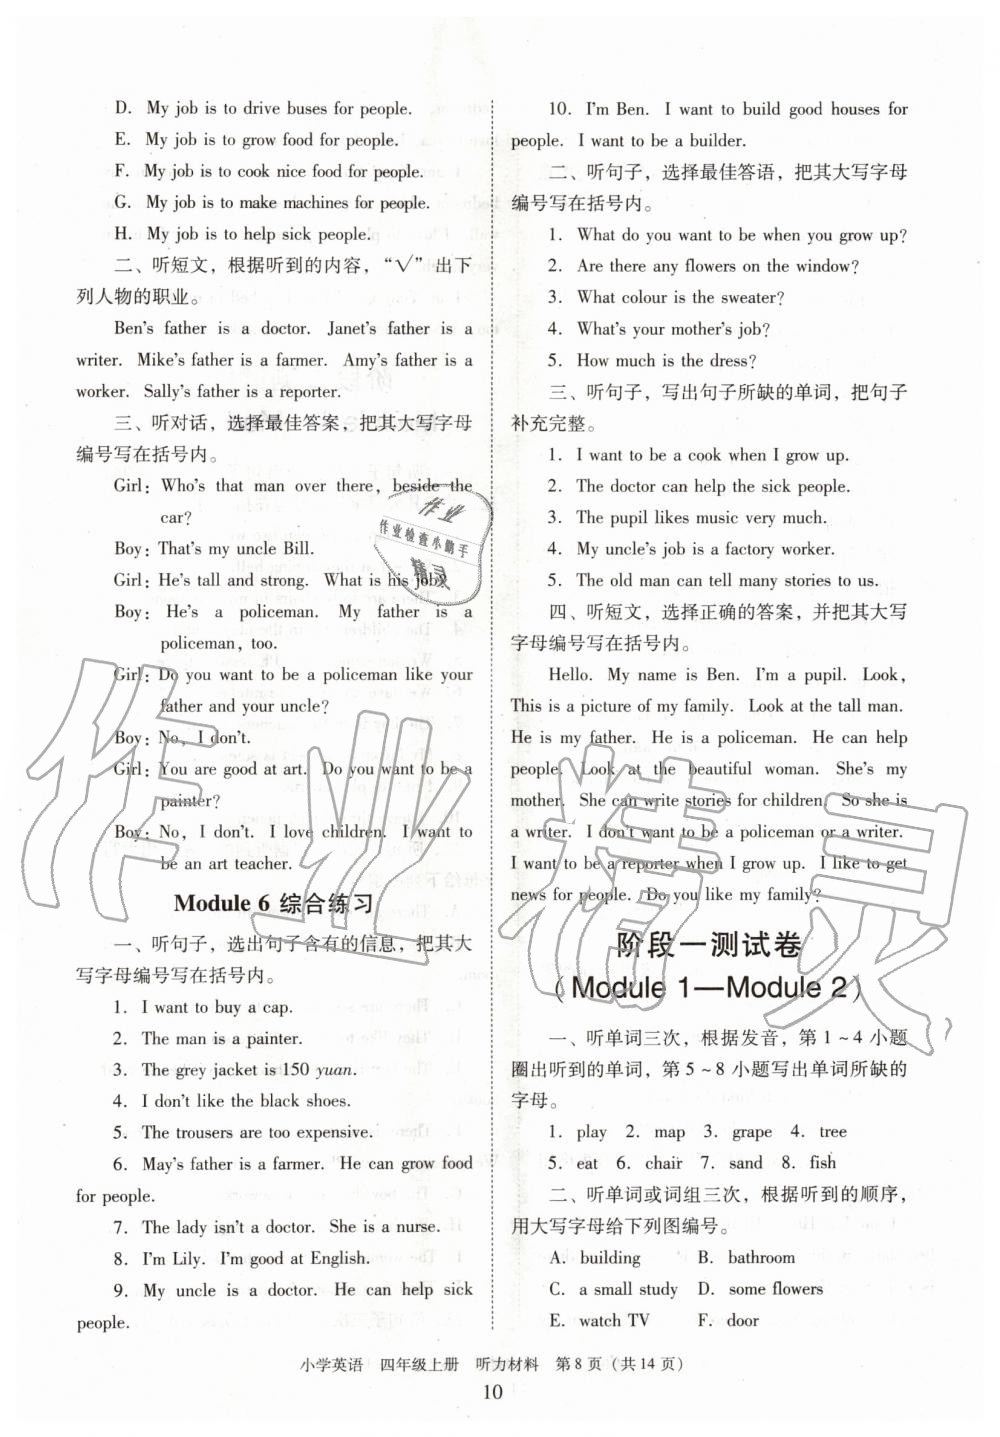 D. My job is to drive buses for people.
E. My job is to grow food for people.
F. My job is to cook nice food for people.
G. My job is to make machines for people.
H. My job is to help sick people.
二、听短文，根据听到的内容，“√”出下
列人物的职业。
Ben's father is a doctor. Janet's father is a
writer. Mike's father is a farmer. Amy's father is a
worker. Sally's father is a reporter.
三、听对话，选择最佳答案，把其大写字母
编号写在括号内。
Girl: Who's that man over there, beside the
car?
Boy: That's my uncle Bill.
Girl: He's tall and strong. What is his job?
Boy: He's a policeman. My father is a
policeman, too.
Girl: Do you want to be a policeman like your
father and your uncle?
Boy: No, I don't.
Girl: You are good at art. Do you want to be a
painter?
Boy: No, I don't. I love children. I want to
be an art teacher.
Module 6 综合练习
一、听句子，选出句子含有的信息，把其大
写字母编号写在括号内。
1. I want to buy a cap.
2. The man is a painter.
3. The grey jacket is 150 yuan.
4. I don't like the black shoes.
5. The trousers are too expensive.
6. May's father is a farmer. He can grow food
for people.
7. The lady isn't a doctor. She is a nurse.
8. I'm Lily. I'm good at English.
9. My uncle is a doctor. He can help sick
people.
10. I'm Ben. I want to build good houses for
people. I want to be a builder.
二、听句子，选择最佳答语，把其大写字母
编号写在括号内。
1. What do you want to be when you grow up?
2. Are there any flowers on the window?
3. What colour is the sweater?
4. What's your mother's job?
5. How much is the dress?
三、听句子，写出句子所缺的单词，把句子
补充完整。
1. I want to be a cook when I grow up.
2. The doctor can help the sick people.
3. The pupil likes music very much.
4. My uncle's job is a factory worker.
5. The old man can tell many stories to us.
四、听短文，选择正确的答案，并把其大写
字母编号写在括号内。
Hello. My name is Ben. I'm a pupil. Look,
This is a picture of my family. Look at the tall man.
He is my father. He is a policeman. He can help
people. Look at the beautiful woman. She's my
mother. She can write stories for children. So she is
a writer. I don't want to be a policeman or a writer.
I want to be a reporter when I grow up. I like to get
news for people. Do you like my family?
阶段一测试卷
(Module 1—Module 2)
一、听单词三次，根据发音，第 1～4 小题
圈出听到的单词，第 5～8 小题写出单词所缺的
字母。
1. play 2. map 3. grape 4. tree
5. eat 6. chair 7. sand 8. fish
二、听单词或词组三次，根据听到的顺序，
用大写字母给下列图编号。
A. building B. bathroom
C. a small study D. some flowers
E. watch TV F. door
小学英语 四年级上册 听力材料 第 8 页（共 14 页）
10
作业
作业检查小助手
精灵
作业精灵